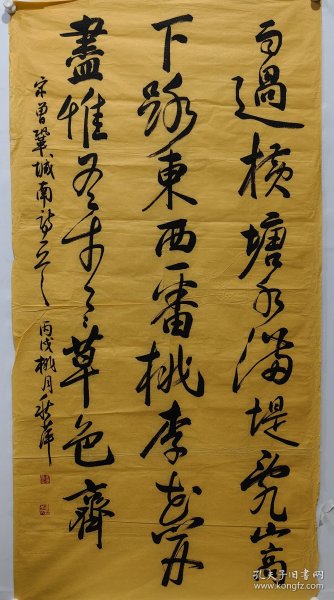 雨過橫塘水滿堤亂山高
下路東西一番桃李花開
盡惟有青々草色齊
宋曾鞏城南詩 丙戌桃月秋萍
孔夫子旧书网